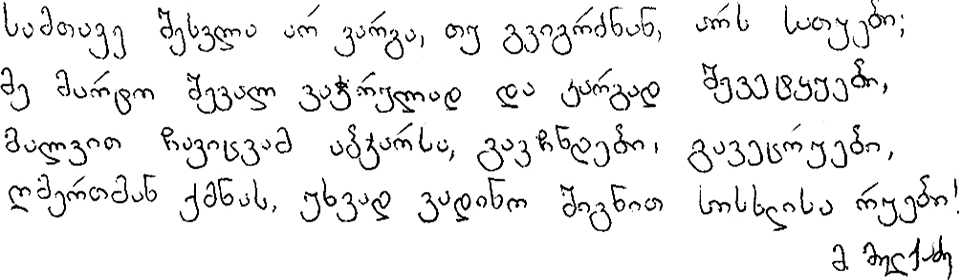 სამთავე შესვლა არ ვარგა, თუ გვიგრძნან, არს სათუები;
მე მარტო შევალ ვაჭრულად და კარგად შევეტყუები,
მალვით ჩავიცვამ აბჯარსა, გავჩნდები, გავეცრუები,
ღმერთმან ქმნას, უხვად ვადინო შიგნით სისხლისა რუები!
მ.